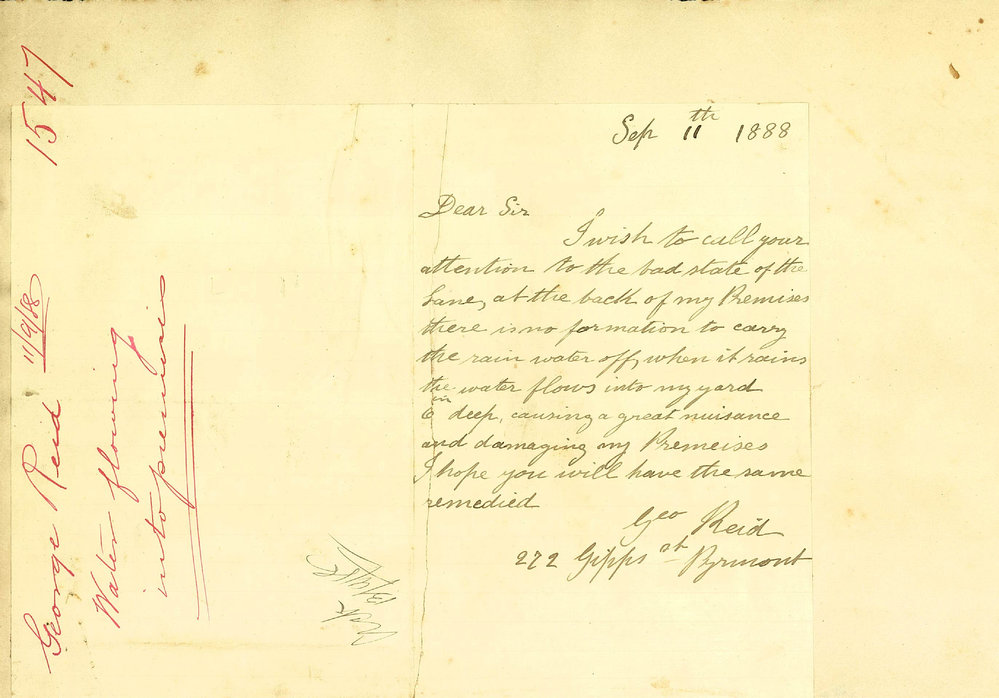 1547
George Reid 11/9/88
Water flowing
into premises
Sep 11th 1888
Dear Sir
I wish to call your
attention to the bad state of the
Lane, at the back of my Premises
there is no formation to carry
the rain water off, when it rains
the water flows into my yard
6 in deep, causing a great nuisance
and damaging my Premeises
I hope you will have the same
remedied
Geo Reid
272 Gipps st Pyrmont